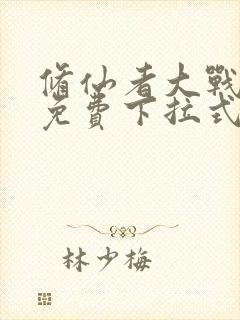 修仙者大戰
免費下拉式
林少梅